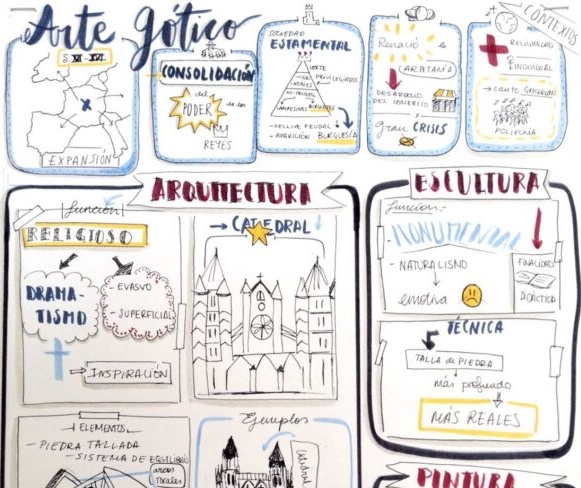 Arte gótico
CONTEXTOS
S. XII - XVI
EXPANSIÓN
CONSOLIDACIÓN
del
PODER
de los
REYES
SOCIEDAD
ESTAMENTAL
PRIVILEGIADOS
BURGUESÍA
- DECLIVE FEUDAL
- APARICIÓN BURGUESÍA
ARTESANÍA
DESARROLLO
DEL COMERCIO
gran CRISIS
RELIGIOSIDAD
EMOCIONAL
→ CANTO GREGORIANO
POLIFONÍA
ARQUITECTURA
función
RELIGIOSO
DRAMA-
TISMO
- EVASIVO
- SUPERFICIAL
INSPIRACIÓN
→ CATEDRAL
ELEMENTOS
- PIEDRA TALLADA
- SISTEMA DE EQUILIBRIO
Ejemplos
Catedral
ESCULTURA
función:
MONUMENTAL
- NATURALISMO
emotiva
FINALIDAD
DIDÁCTICA
TÉCNICA
TALLA de PIEDRA
más profundo
MÁS REALES
PINTURA